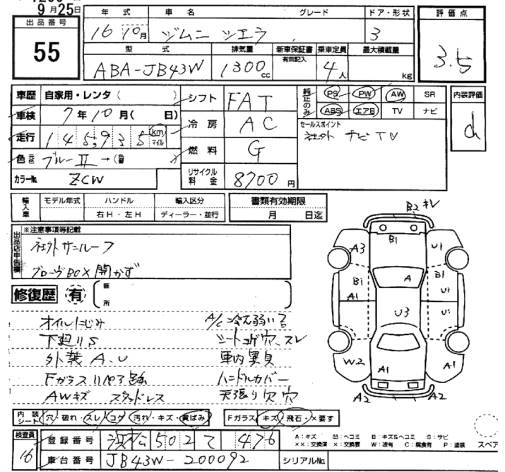 9月25日
出品番号 55
年式 16年10月 車名 ジムニシエラ グレード ドア・形状 3
型式 ABA-JB43W 排気量 1300cc 新車保証書 有 同記入 乗車定員 4人 最大積載量 kg
評価点 3.5
車歴 自家用・レンタ( )
車検 7年10月( 日)
走行 145,935 km マイル
色 ブルーⅡ→(
カラーNo. ZCW
シフト FAT
冷房 AC
燃料 G
リサイクル料金 8700円
純正のみ PS PW AW SR
ABS エアB TV ナビ
セールスポイント
社外 ナビTV
内装評価 d
輸入車 モデル年式 ハンドル 右H・左H 輸入区分 ディーラー・並行
書類有効期限 月 日迄
出品店申告欄 ※注意事項等記載
社外サンルーフ
グローヴBOX開かず
修復歴 有 ( 箇所
オイルにじみ
下廻りS
外装A.U
AWキズ
A/C冷え弱い
車内異臭
ハンドルカバー
天張り穴
B2 キV
B1
A3 U1
B1 A B1
A1 U3
W2 A1 A1
A2 A2
内装シート 穴・破れ・スレ・コゲ・汚れ・キズ・黄ばみ
Fガラス キズ・飛石・×要す
検査員 16
登録番号 浜松502て476
車台番号 JB43W-200092 シリアルNo.
A:キズ U:ヘコミ B:キズ&ヘコミ S:サビ
××:交換済 ×:要交換 W:波有 C:腐食有 P:塗装
スペア